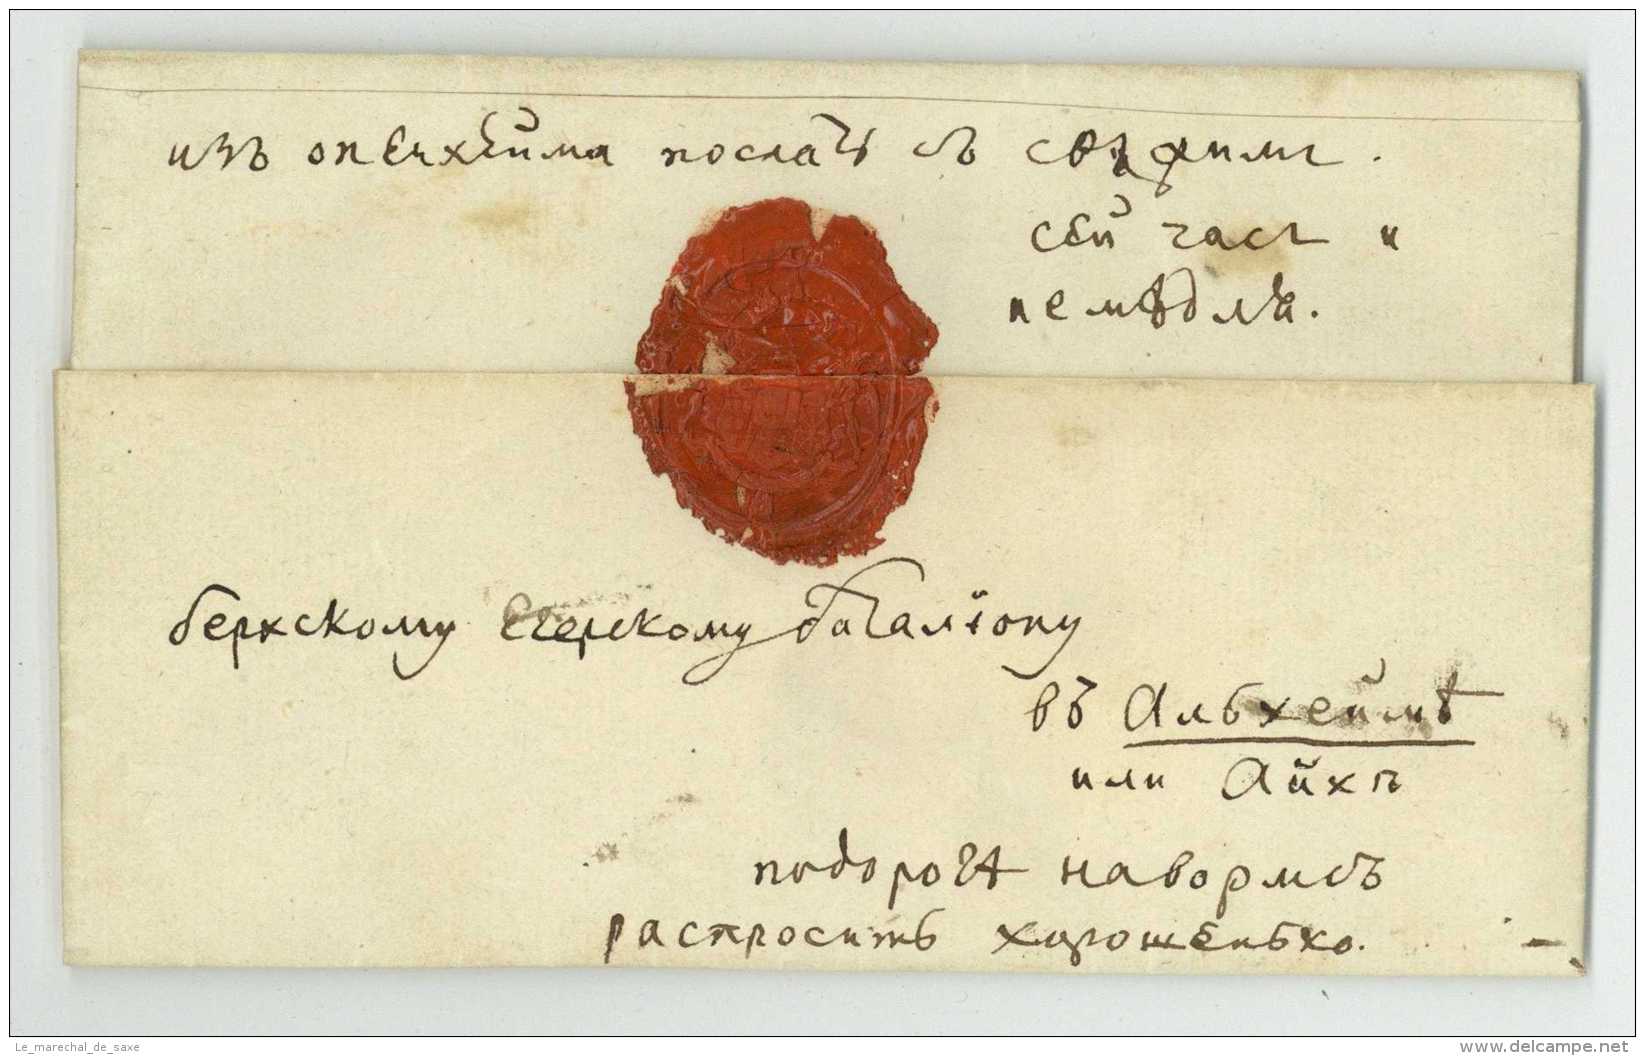 изъ опенхейма послать съ
сей часъ и
немѣдля.
берхскому Егерскому баталіону
въ Альбхеймѣ
или Айхъ
подороге навормсъ
распросить хорошенько.
Le_marechal_de_saxe
www.delcampe.net